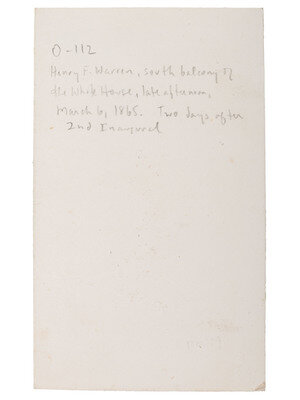 O-112
Henry F. Warren, south balcony of
the White House, late afternoon,
March 6, 1865. Two days after
2nd Inaugural